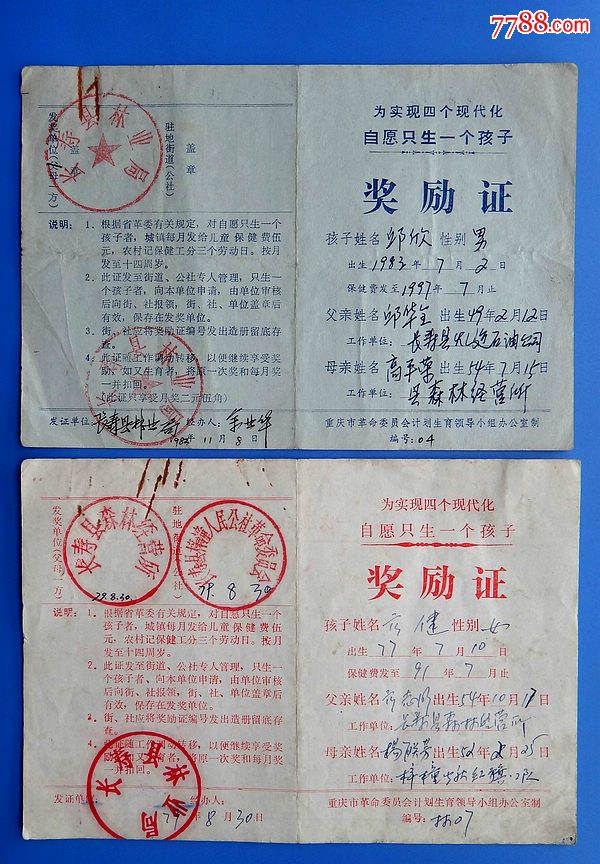 7788.com
为实现四个现代化
自愿只生一个孩子
奖励证
孩子姓名 邱欣 性别 男
出生 1983年7月2日
保健费发至1997年7月止
父亲姓名 邱华全 出生49年2月12日
工作单位：长寿县
母亲姓名 出生54年7月1日
工作单位：县森林经营所
重庆市革命委员会计划生育领导小组办公室制
编号：04
发奖单位(父母一方)
盖章
驻地街道(公社)
盖章
长寿县林业局
说明：1、根据省革委有关规定，对自愿只生一个
孩子者，城镇每月发给儿童保健费伍
元，农村记保健工分三个劳动日。按月
发至十四周岁。
2、此证发至街道、公社专人管理，只生一
个孩子者，向本单位申请，由单位审核
后向街、社报领，街、社、单位盖章后
有效，保存在发奖单位。
3、街、社应将奖励证编号发出造册留底存
查。
4、此证随工作调动转移，以便继续享受奖
励，如又生育者，将原一次奖和每月奖
一并扣回。
(此证只享受月奖二元伍角)
发证单位：长寿县林业局 经办人：
11月8日
为实现四个现代化
自愿只生一个孩子
奖励证
孩子姓名 健 性别 女
出生 77年7月10日
保健费发至 91年7月止
父亲姓名 出生54年10月17日
工作单位：长寿县森林经营所
母亲姓名 出生 25日
工作单位：
重庆市革命委员会计划生育领导小组办公室制
编号：林07
发奖单位(父母一方)
驻地
长寿县森林经营所
人民公社革命委员会
79.8.30.
79.8.30
说明：1、根据省革委有关规定，对自愿只生一个
孩子者，城镇每月发给儿童保健费伍
元，农村记保健工分三个劳动日。按月
发至十四周岁。
2、此证发至街道、公社专人管理，只生一
个孩子者，向本单位申请，由单位审核
后向街、社报领，街、社、单位盖章后
有效，保存在发奖单位。
3、街、社应将奖励证编号发出造册留底存
查。
4、此证随工作调动转移，以便继续享受奖
励，如又生育者，将原一次奖和每月奖
一并扣回。
长寿县林业局
发证单位 经办人：
79年8月30日